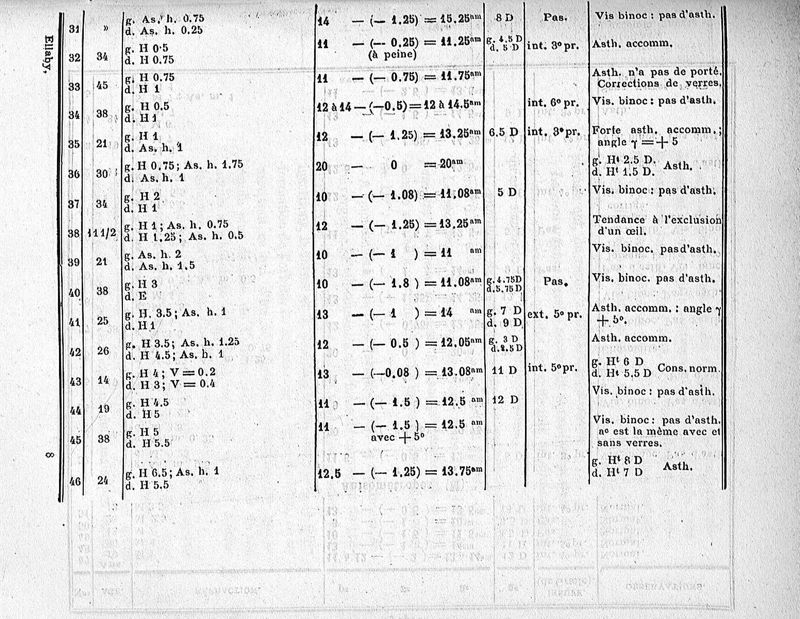 31 » g. As. h. 0.75 14 — (— 1.25) = 15.25am 8 D Pas. Vis binoc : pas d'asth.
d. As. h. 0.25
32 34 g. H 0.5 11 — (— 0.25) = 11.25am g. 4.5 D int. 3º pr. Asth. accomm.
d. H 0.75 (à peine) d. 5 D
33 45 g. H 0.75 11 — (— 0.75) = 11.75am Asth. n'a pas de porté.
d. H 1 Corrections de verres.
34 38 g. H 0.5 12 à 14 — (—0.5) = 12 à 14.5am int. 6º pr. Vis. binoc : pas d'asth.
d. H1
35 21 g. H 1 12 — (— 1.25) = 13.25am 6.5 D int. 3º pr. Forte asth. accomm. ;
d. As. h. 1 angle γ = + 5
36 30 g. H 0.75; As. h. 1.75 20 — 0 = 20am g. Ht 2.5 D. Asth.
d. As. h. 1 d. Ht 1.5 D.
37 34 g. H 2 10 — (— 1.08) = 11.08am 5 D Vis. binoc : pas d'asth.
d. H 1
38 11 1/2 g. H 1 ; As. h. 0.75 12 — (— 1.25) = 13.25am Tendance à l'exclusion
d. H 1.25; As. h. 0.5 d'un œil.
39 21 g. As. h. 2 10 — (— 1 ) = 11 am Vis. binoc. pas d'asth.
d. As. h. 1.5
40 38 g. H 3 10 — (— 1.8 ) = 11.08am g. 4.75 D Pas. Vis. binoc. pas d'asth.
d. E d. 5.75 D
41 25 g. H. 3.5; As. h. 1 13 — (— 1 ) = 14 am g. 7 D ext. 5º pr. Asth. accomm. : angle γ
d. H1 d. 9 D + 5º.
42 26 g. H 3.5; As. h. 1.25 12 — (— 0.5 ) = 12.05am g. 3 D Asth. accomm.
d. H 4.5; As. h. 1 d. 2.5 D
43 14 g. H 4; V = 0.2 13 — (—0.08 ) = 13.08am 11 D int. 5º pr. g. Ht 6 D Cons. norm.
d. H 3; V = 0.4 d. Ht 5.5 D
44 19 g. H 4.5 11 — (— 1.5 ) = 12.5 am 12 D Vis. binoc : pas d'asth.
d. H5
45 38 g. H 5 11 — (— 1.5 ) = 12.5 am Vis. binoc : pas d'asth.
d. H 5.5 avec + 5º aº est la même avec et
sans verres.
46 24 g. H 6.5; As. h. 1 12.5 — (— 1.25) = 13.75am g. Ht 8 D Asth.
d. H 5.5 d. Ht 7 D
Ellaby.
8